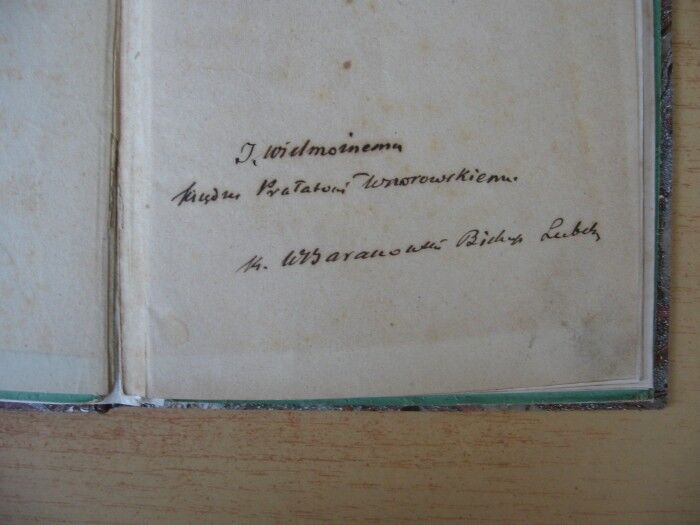 J. Wielmożnemu
Księdzu Prałatowi Wnorowskiemu.
K. W Baranowski Biskup Lubels